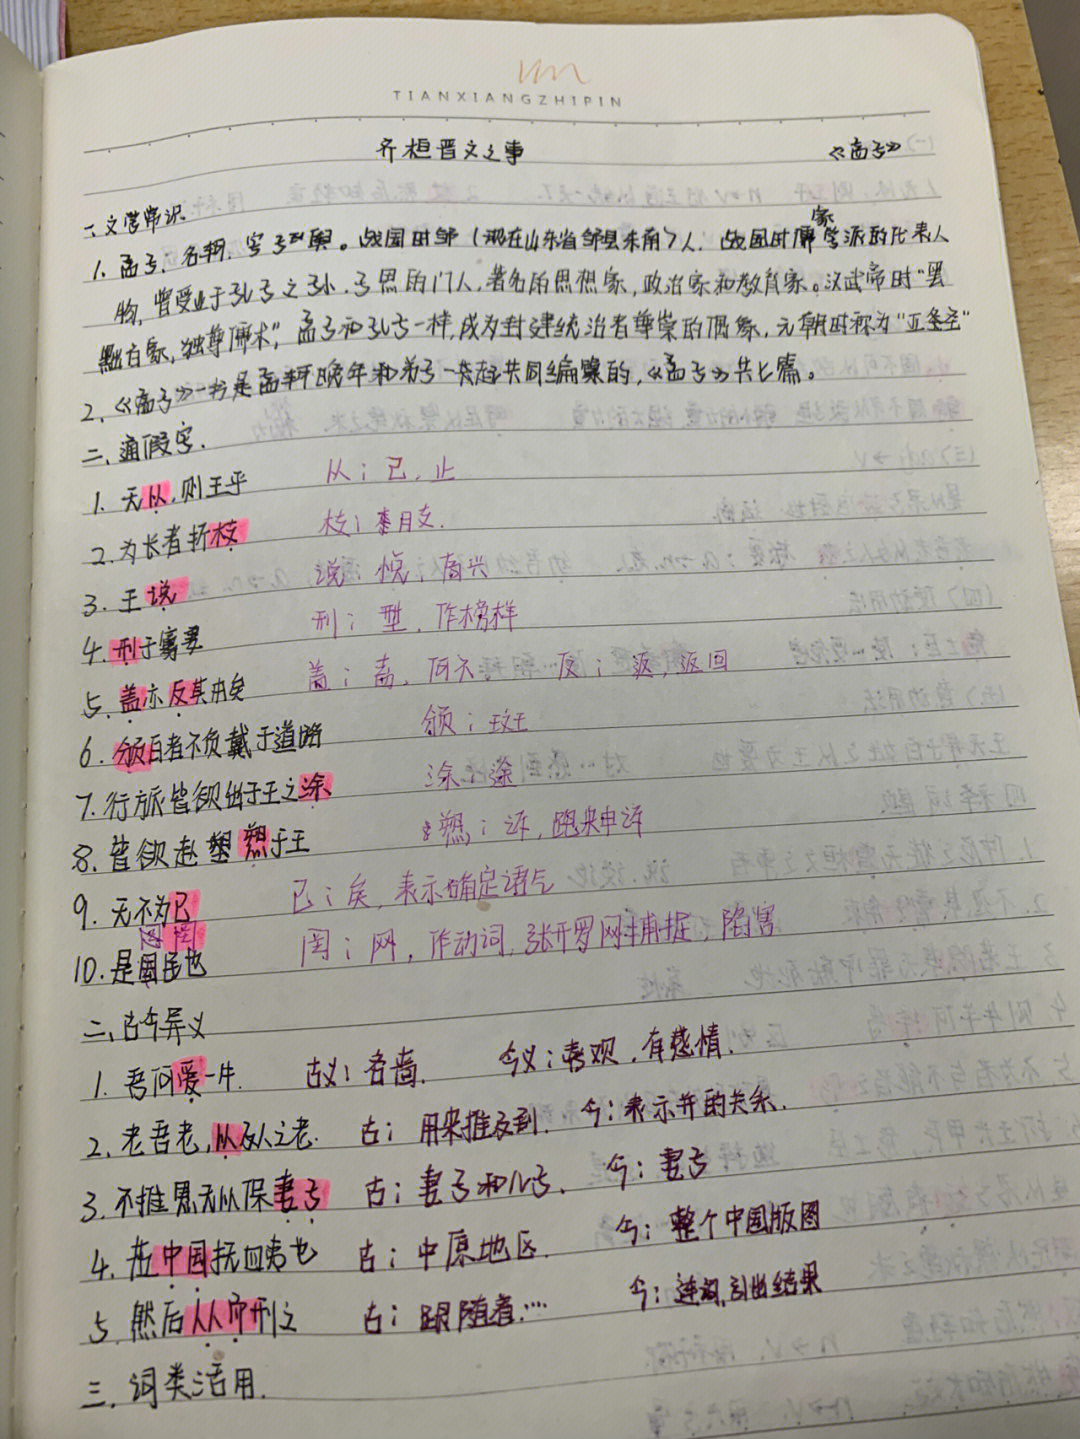 TIANXIANGZHIPIN
齐桓晋文之事 《孟子》
一、文学常识
1. 孟子,名轲,字子舆。战国时邹(现在山东省邹县东南)人,战国时儒家学派的代表人
物,曾受业于孔子之孙、子思的门人,著名的思想家,政治家和教育家。汉武帝时"罢
黜百家,独尊儒术",孟子和孔子一样,成为封建统治者尊崇的偶象,元朝时称为"亚圣"
2.《孟子》一书是孟轲晚年和弟子一起共同编纂的,《孟子》共七篇。
二、通假字.
1. 无以,则王乎 以:已,止
2. 为长者折枝 枝:肢.
3. 王说 说:悦:高兴
4. 刑于寡妻 刑:型,作榜样
5. 盖亦反其本矣 盖:盍,何不 反:返,返回
6. 颁白者不负戴于道路 颁:斑
7. 行旅皆欲出于王之涂 涂:途
8. 皆欲赴愬于王 愬:诉,跑来申诉
9. 无不为已 已:矣,表示确定语气
10. 是罔民也 罔:网,作动词,张开罗网捕捉,陷害
二、古今异义
1. 吾何爱一牛. 古义:吝啬. 今义:喜欢,有感情.
2. 老吾老,以及人之老. 古:用来推及到. 今:表示并的关系.
3. 不推恩无以保妻子 古:妻子和儿子. 今:妻子
4. 莅中国抚四夷也 古:中原地区. 今:整个中国版图
5. 然后从而刑之 古:跟随着… 今:连词,引出结果
三、词类活用.